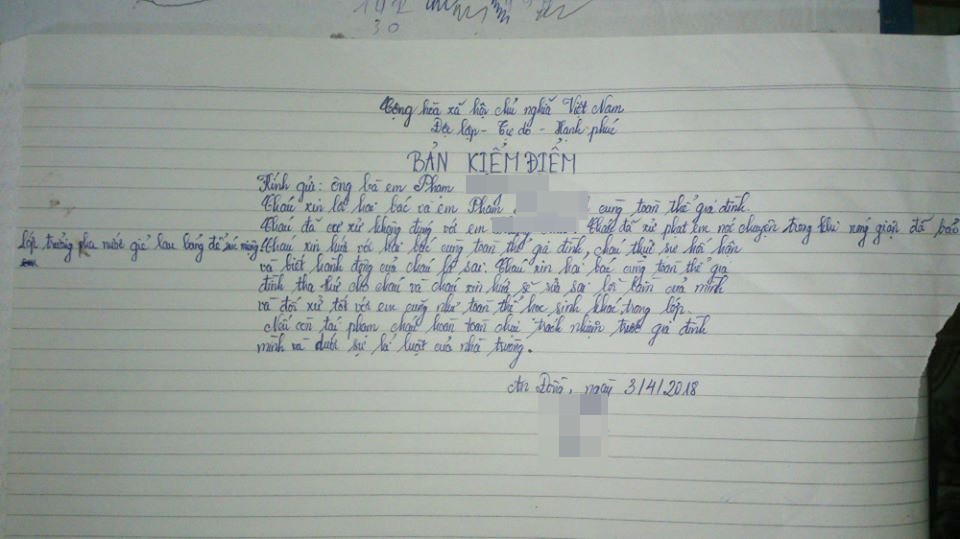 Cộng hòa xã hội chủ nghĩa Việt Nam
Độc lập - Tự do - Hạnh phúc
BẢN KIỂM ĐIỂM
Kính gửi: ông bà em Phạm
Cháu xin lỗi hai bác và em Phạm cùng toàn thể gia đình
Cháu đã cư xử không đúng với em Cháu đã xử phạt em nói chuyện trong khi nóng giận đã bảo
lớp trưởng pha nước giẻ lau bảng để súc miệng
Cháu xin hứa với hai bác cùng toàn thể gia đình, cháu thực sự hối hận
và biết hành động của cháu là sai. Cháu xin hai bác cùng toàn thể gia
đình tha thứ cho cháu và cháu xin hứa sẽ sửa sai lỗi lầm của mình
và đối xử tốt với em cũng như toàn thể học sinh khác trong lớp.
Nếu còn tái phạm cháu hoàn toàn chịu trách nhiệm trước gia đình
mình và dưới sự kỉ luật của nhà trường.
An Đồng, ngày 3/4/2018